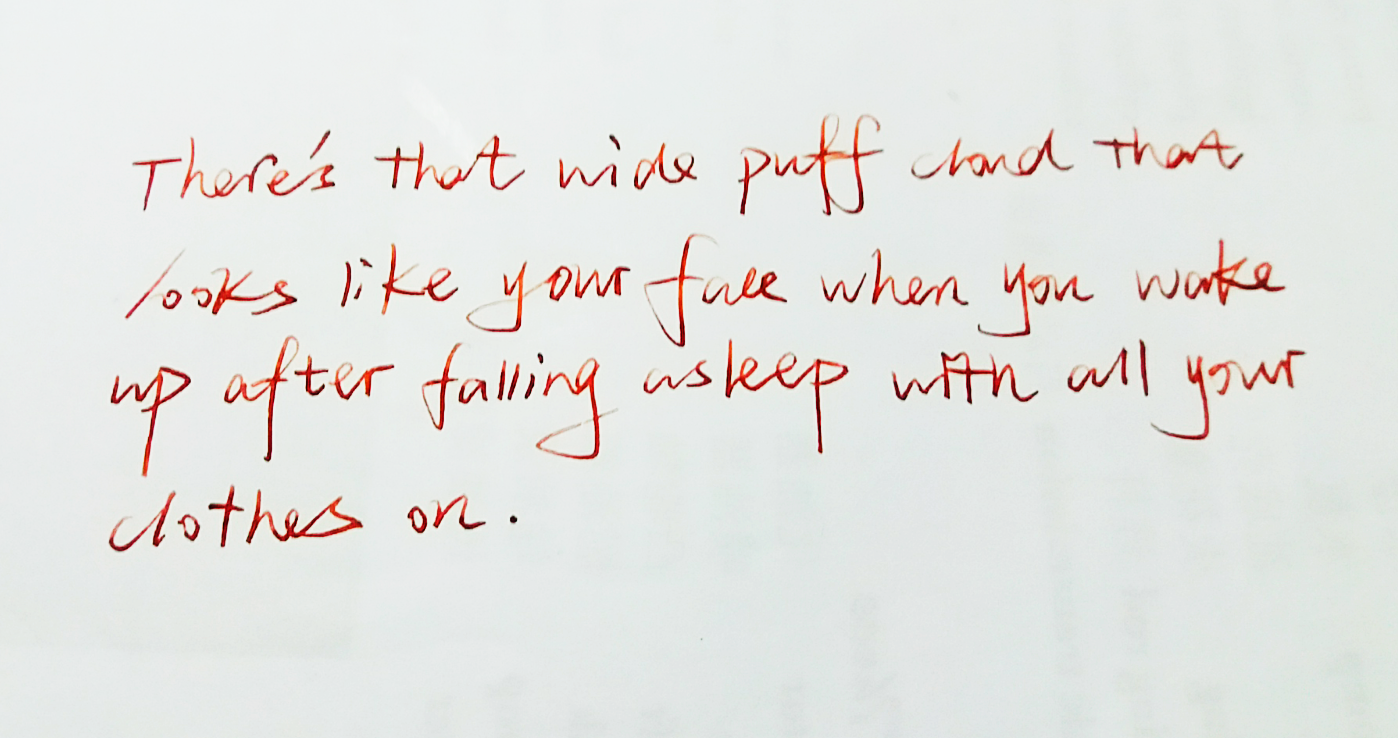 There's that wide puff cloud that
looks like your face when you wake
up after falling asleep with all your
clothes on.